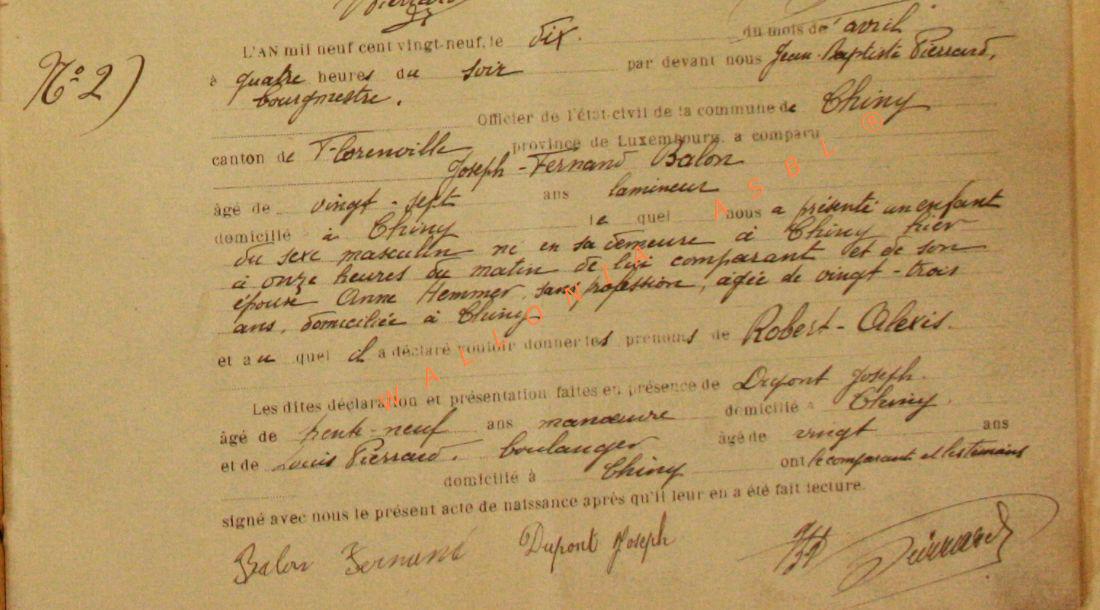 Pierrard
N° 2)
L'AN mil neuf cent vingt-neuf, le dix. du mois de avril
à quatre heures du soir par devant nous Jean-Baptiste Pierrard,
bourgmestre.
Officier de l'état-civil de la commune de Chiny
canton de Florenville province de Luxembourg, a comparu
Joseph-Fernand Balon
âgé de vingt-sept ans lamineur
domicilié à Chiny le quel nous a présenté un enfant
du sexe masculin né en sa demeure à Chiny hier
à onze heures du matin de lui comparant et de son
épouse Anne Hemmer, sans profession, agée de vingt-trois
ans, domiciliée à Chiny
et au quel il a déclaré vouloir donner les prénoms de Robert-Alexis.
Les dites déclaration et présentation faites en présence de Dupont Joseph.
âgé de trente-neuf ans manœuvre domicilié à Chiny.
et de Louis Pierrard. boulanger âgé de vingt ans
domicilié à Chiny ont le comparant et les témoins
signé avec nous le présent acte de naissance après qu'il leur en a été fait lecture.
Balon Fernand Dupont Joseph Pierrard
WALLONIA ASBL ®